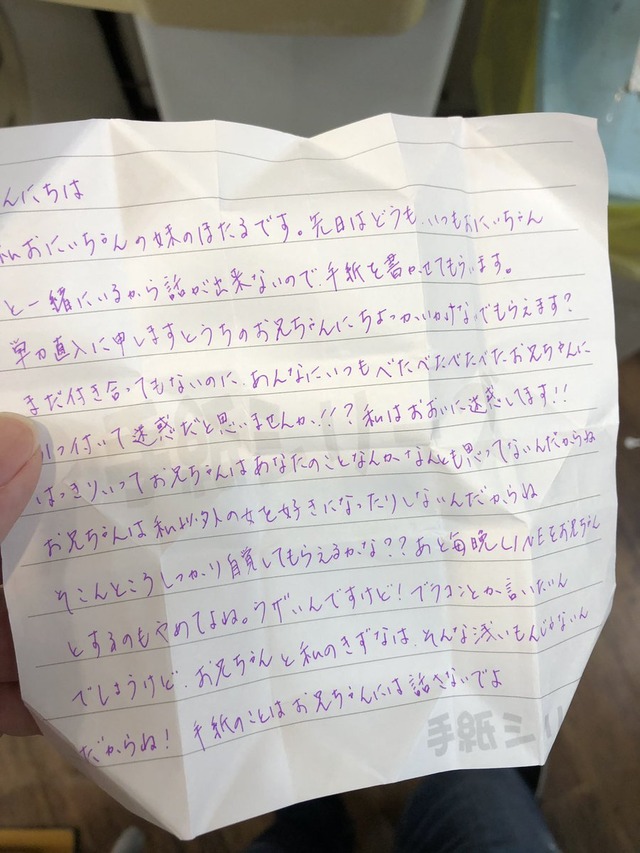 んにちは
私おにいちゃんの妹のほたるです。先日はどうも、いつもおにいちゃん
と一緒にいるから話が出来ないので、手紙を書かせてもらいます。
単刀直入に申しますとうちのお兄ちゃんにちょっかいかけないでもらえます?
まだ付き合ってもないのに、あんなにいつもべたべたべたべたお兄ちゃんに
っ付いて迷惑だと思いませんか!!?私はおおいに迷惑してます!!
はっきりいってお兄ちゃんはあなたのことなんか、なんとも思ってないんだからね
お兄ちゃんは私以外の女を好きになったりしないんだからね
そこんところしっかり自覚してもらえるかな??あと毎晩LINEをお兄ちゃん
とするのもやめてよね。うざいんですけど!ブラコンとか言いたいん
でしょうけど、お兄ちゃんと私のきずなは、そんな浅いもんじゃないん
だからね!手紙のことはお兄ちゃんには話さないでよ
手紙ミ